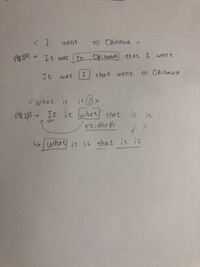 < I went to Okinawa >
強調 → It was to Okinawa that I went
It was I that went to Okinawa
< What is it ? >
強調 → Is it what that is it
↓ ?
↳ What is it that it is